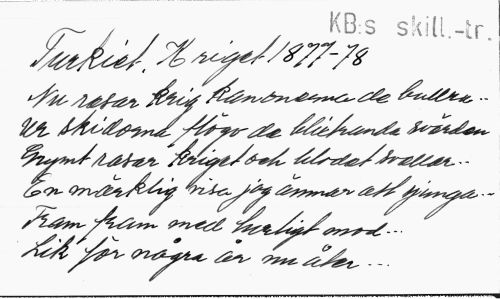 KB:s skill.-tr.
Turkiet. Kriget 1877-78
Nu rasar krig kanonerna de bullra..
Ur skidorna flögo de blixtrande svärden
Grymt rasar kriget och blodet svallar..
En märklig visa jag ämnar att sjunga..
Fram, fram med hurtigt mod...
Lik för några år nu åter...